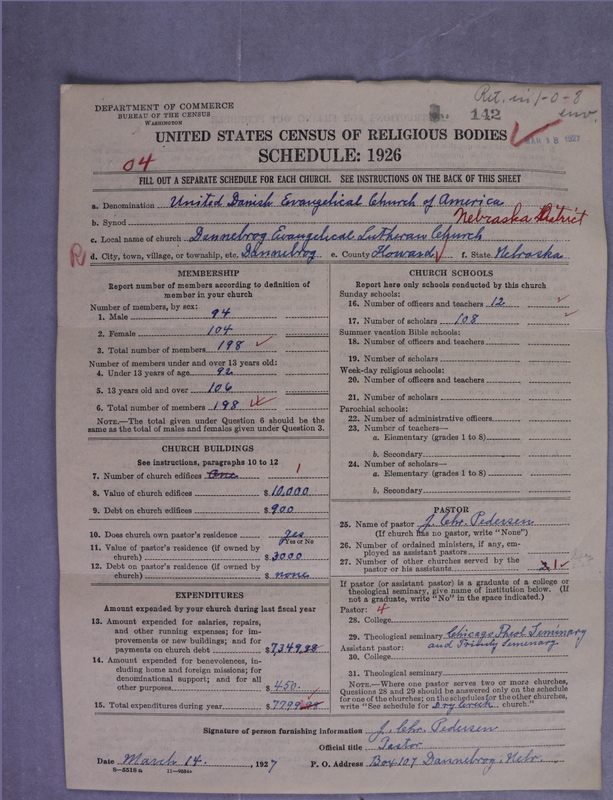 Ret. in 1-0-8
env.
DEPARTMENT OF COMMERCE
BUREAU OF THE CENSUS
WASHINGTON
142
MAR 18 1927
UNITED STATES CENSUS OF RELIGIOUS BODIES
SCHEDULE: 1926
04
FILL OUT A SEPARATE SCHEDULE FOR EACH CHURCH. SEE INSTRUCTIONS ON THE BACK OF THIS SHEET
a. Denomination United Danish Evangelical Church of America
b. Synod Nebraska District
c. Local name of church Dannebrog Evangelical Lutheran Church
R d. City, town, village, or township, etc. Dannebrog e. County Howard f. State Nebraska
MEMBERSHIP
Report number of members according to definition of
member in your church
Number of members, by sex:
1. Male 94
2. Female 104
3. Total number of members 198
Number of members under and over 13 years old:
4. Under 13 years of age 92
5. 13 years old and over 106
6. Total number of members 198
NOTE.—The total given under Question 6 should be the
same as the total of males and females given under Question 3.
CHURCH BUILDINGS
See instructions, paragraphs 10 to 12
7. Number of church edifices One 1
8. Value of church edifices $ 10,000
9. Debt on church edifices $ 900
10. Does church own pastor's residence yes
Yes or No
11. Value of pastor's residence (if owned by
church) $ 3000
12. Debt on pastor's residence (if owned by
church) $ none
EXPENDITURES
Amount expended by your church during last fiscal year
13. Amount expended for salaries, repairs,
and other running expenses; for im-
provements or new buildings; and for
payments on church debt $ 7349.98
14. Amount expended for benevolences, in-
cluding home and foreign missions; for
denominational support; and for all
other purposes $ 450.
15. Total expenditures during year $ 7799.98
CHURCH SCHOOLS
Report here only schools conducted by this church
Sunday schools:
16. Number of officers and teachers 12
17. Number of scholars 108
Summer vacation Bible schools:
18. Number of officers and teachers
19. Number of scholars
Week-day religious schools:
20. Number of officers and teachers
21. Number of scholars
Parochial schools:
22. Number of administrative officers
23. Number of teachers—
a. Elementary (grades 1 to 8)
b. Secondary
24. Number of scholars—
a. Elementary (grades 1 to 8)
b. Secondary
PASTOR
25. Name of pastor J. Chr. Pedersen
(If church has no pastor, write "None")
26. Number of ordained ministers, if any, em-
ployed as assistant pastors
27. Number of other churches served by the
pastor or his assistants 1
If pastor (or assistant pastor) is a graduate of a college or
theological seminary, give name of institution below. (If
not a graduate, write "No" in the space indicated.)
Pastor: 4
28. College
29. Theological seminary Chicago Theol. Seminary
Assistant pastor: and Trinity Seminary.
30. College
31. Theological seminary
NOTE.—Where one pastor serves two or more churches,
Questions 28 and 29 should be answered only on the schedule
for one of the churches; on the schedules for the other churches,
write "See schedule for Dry Creek church."
Signature of person furnishing information J. Chr. Pedersen
Official title Pastor
Date March 14. , 1927 P. O. Address Box 107 Dannebrog, Nebr.